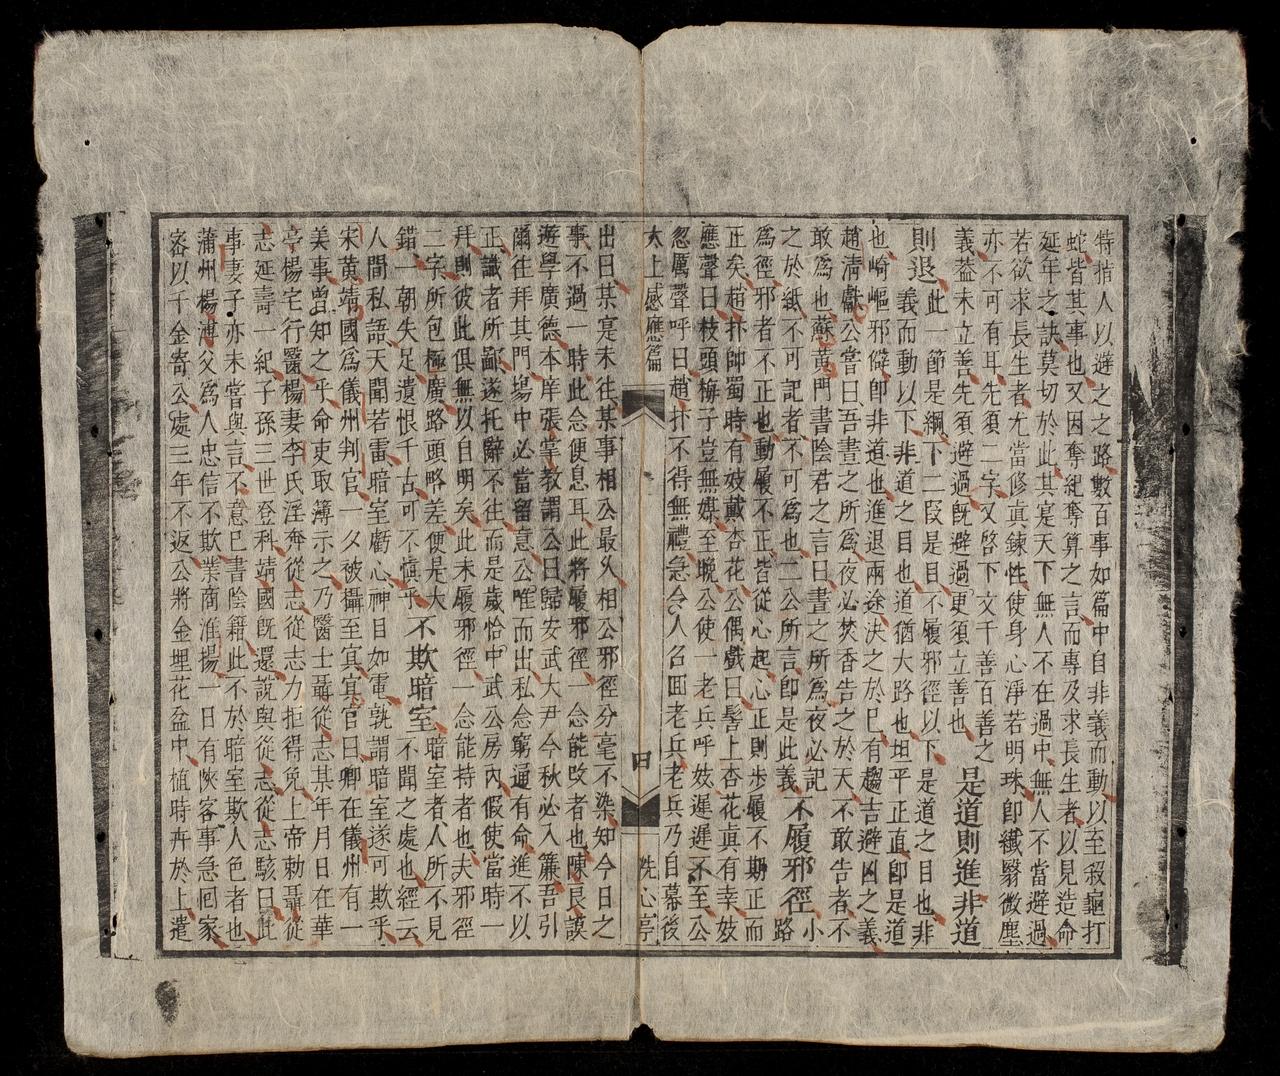 特指人以避之之路數百事如篇中自非義而動以至殺龜打
蛇皆其事也又因奪紀奪算之言而專及求長生者以見造命
延年之訣莫切於此其寔天下無人不在過中無人不當避過
若欲求長生者尤當修真鍊性使身心淨若明珠即纖翳微塵
亦不可有耳先須二字又啓下文千善百善之
義葢未立善先須避過既避過更須立善也 是道則進非道
則退 此一節是綱下二段是目不履邪徑以下是道之目也非
義而動以下非道之目也道猶大路也坦平正直即是道
也崎嶇邪僻即非道也進退兩途決之於已有趨吉避凶之義
趙清獻公嘗曰吾晝之所為夜必焚香告之於天不敢告者不
敢為也蘇黃門書陰君之言曰晝之所為夜必記
之於紙不可記者不可為也二公所言即是此義 不履邪徑 小路
為徑邪者不正也動履不正皆從心起心正則步履不期正而
正矣趙抃帥蜀時有妓戴杏花公偶戲曰髻上杏花真有幸妓
應聲曰枝頭梅子豈無媒至晩公使一老兵呼妓遲遲不至公
忽厲聲呼曰趙抃不得無禮急令人名回老兵老兵乃自幕後
太上感應篇 四 洗心亭
出曰某寔未往某事相公最久相公邪徑分毫不染知今日之
事不過一時此念便息耳此將履邪徑一念能改者也陳良謨
遊學廣德本庠張掌教謂公曰歸安武大尹今秋必入簾吾引
爾往拜其門塲中必當留意公唯而出私念窮通有命進不以
正識者所鄙遂托辭不往而是歲恰中武公房內假使當時一
拜則彼此俱無以自明矣此未履邪徑一念能持者也夫邪徑
二字所包極廣路頭略差便是大
錯一朝失足遺恨千古可不愼乎 不欺暗室 暗室者人所不見
不聞之處也經云
人間私語天聞若雷暗室虧心神目如電孰謂暗室遂可欺乎
宋黃靖國為儀州判官一夕被攝至冥冥官曰卿在儀州有一
美事曾知之乎命吏取簿示之乃醫士聶從志某年月日在華
亭楊宅行醫楊妻李氏淫奔從志從志力拒得免上帝勅聶從
志延壽一紀子孫三世登科靖國既還說與從志從志駭曰此
事妻子亦未嘗與言不意已書陰籍此不於暗室欺人色者也
蒲州楊溥父為人忠信不欺業商淮揚一日有陝客事急回家
密以千金寄公處三年不返公將金埋花盆中植時卉於上遣